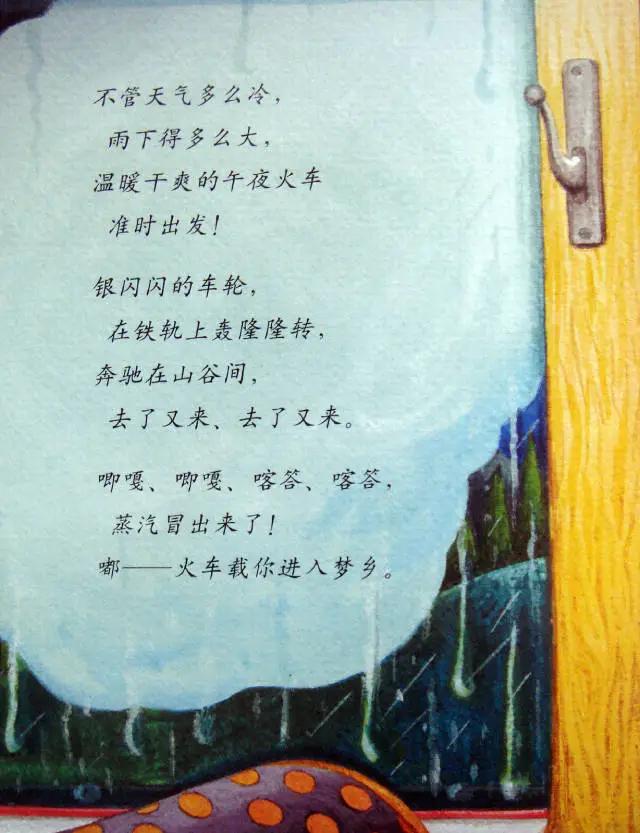 不管天气多么冷，
雨下得多么大，
温暖干爽的午夜火车
准时出发！
银闪闪的车轮，
在铁轨上轰隆隆转，
奔驰在山谷间，
去了又来、去了又来。
唧嘎、唧嘎、喀答、喀答，
蒸汽冒出来了！
嘟——火车载你进入梦乡。